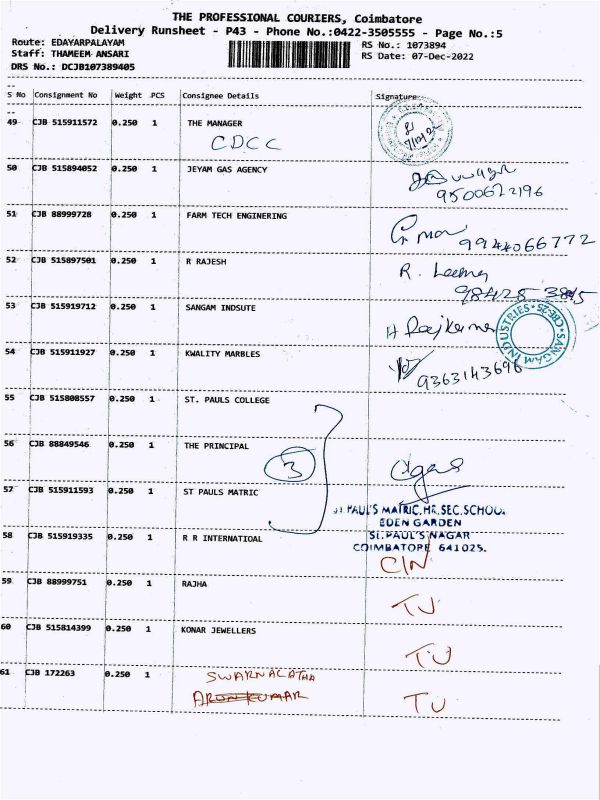 THE PROFESSIONAL COURIERS, Coimbatore
Delivery Runsheet - P43 - Phone No.:0422-3505555 - Page No.:5
Route: EDAYARPALAYAM RS No.: 1073894
Staff: THAMEEM ANSARI RS Date: 07-Dec-2022
DRS No.: DCJB107389405
S No Consignment No Weight PCS Consignee Details Signature
49 CJB 515911572 0.250 1 THE MANAGER
CDCC
50 CJB 515894052 0.250 1 JEYAM GAS AGENCY
9500672196
51 CJB 88999728 0.250 1 FARM TECH ENGINERING
9944066772
52 CJB 515897501 0.250 1 R RAJESH R.
98428 3845
53 CJB 515919712 0.250 1 SANGAM INDSUTE
H Rajkumar
SANGAM INDUSTRIES * CBE25 *
54 CJB 515911927 0.250 1 KWALITY MARBLES
9363143696
55 CJB 515808557 0.250 1 ST. PAULS COLLEGE
56 CJB 88849546 0.250 1 THE PRINCIPAL
3
57 CJB 515911593 0.250 1 ST PAULS MATRIC
ST.PAUL'S MATRIC.HR.SEC.SCHOOL
EDEN GARDEN
58 CJB 515919335 0.250 1 R R INTERNATIOAL ST.PAUL'S NAGAR
COIMBATORE 641025.
C/N
59 CJB 88999751 0.250 1 RAJHA
TU
60 CJB 515814399 0.250 1 KONAR JEWELLERS
TU
61 CJB 172263 0.250 1 SWARNALATHA
ARUN KUMAR TU